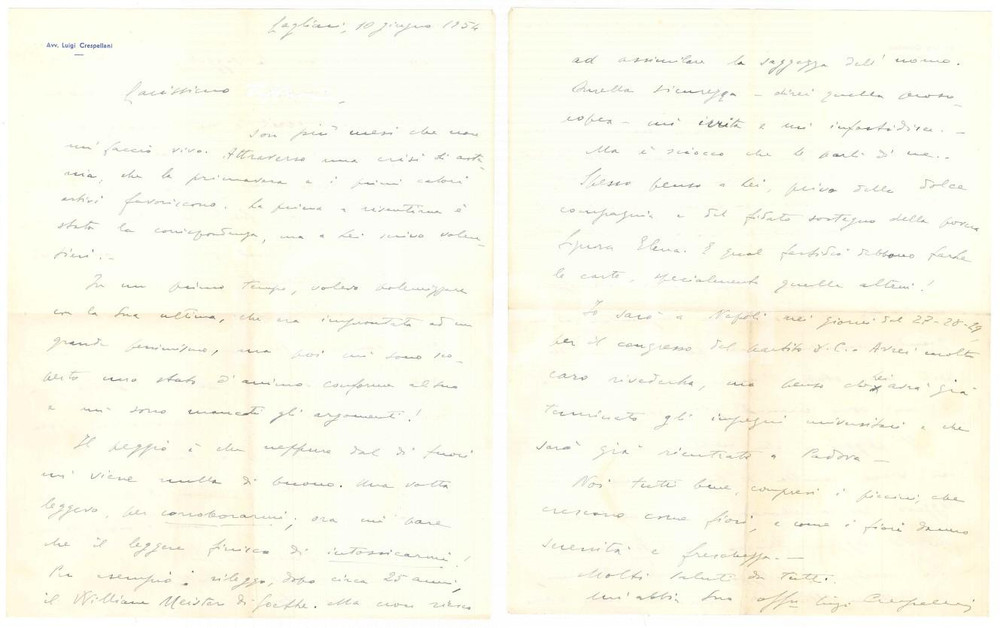 Cagliari, 10 giugno 1954
Avv. Luigi Crespellani
Carissimo
son più mesi che non
mi faccio vivo. Attraverso una crisi di aste-
nia, che la primavera e i primi calori
estivi favoriscono. La prima a risentirne è
stata la corrispondenza, ma a Lei scrivo volen-
tieri. -
In un primo tempo, volevo polemizzare
con la Sua ultima, che era improntata ad un
grande pessimismo, ma poi mi sono sco-
perto uno stato d'animo conforme al Suo
e mi sono mancati gli argomenti!
Il peggio è che neppure dal di fuori
mi viene nulla di buono. Una volta
leggevo, per corroborarmi; ora mi pare
che il leggere finisca di intossicarmi!
Per esempio: rileggo, dopo circa 25 anni,
il William Meister di Goethe. Ma non riesco
ad assimilare la saggezza dell'uomo.
Quella sicurezza - direi quella
- mi irrita e mi infastidisce. -
Ma è sciocco che le parli di me..
Spesso penso a Lei, privo della dolce
compagnia e del fidato sostegno della povera
Signora Elena. E qual fastidio debbono farle
le carte, specialmente quelle altrui!
Io sarò a Napoli nei giorni del 27-28-29
per il congresso del partito d.C.. Avrei molto
caro rivederla, ma penso che Lei avrà già
terminato gli impegni universitari e che
sarà già rientrato a Padova -
Noi tutti bene, compresi i piccini, che
crescono come fiori, e come i fiori danno
serenità e freschezza. -
Molti saluti da tutti.
Mi abbia Suo aff.mo Luigi Crespellani